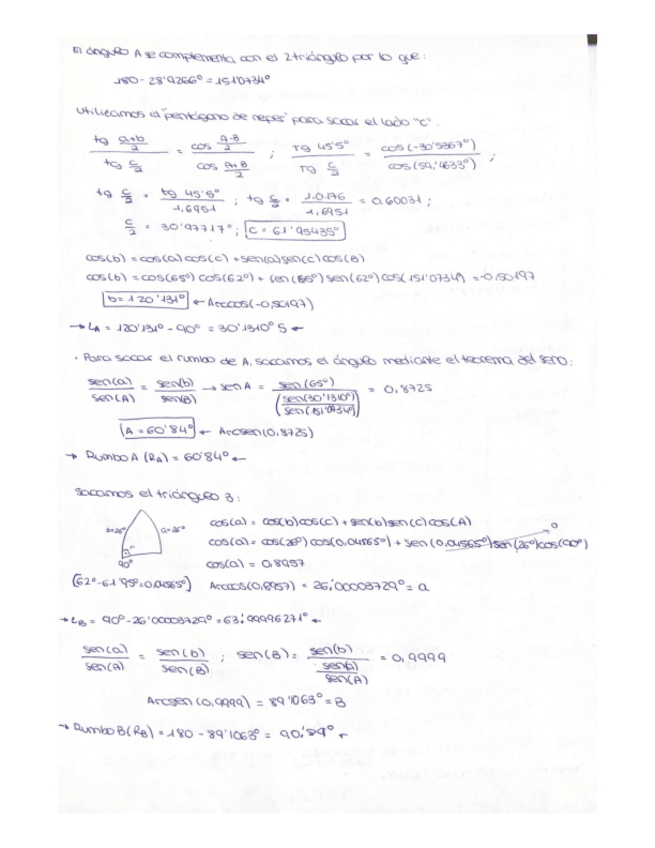 El ángulo A se complementa con el 2 triángulo por lo que:
180 - 28'9266° = 151'0734°
Utilizamos el "pentágono de neper" para sacar el lado "c".
tg a+b/2 / tg c/2 = cos A-B/2 / cos A+B/2 ; Tg 45'5° / Tg c/2 = cos(-30'5367°) / cos(59,4633°) ;
tg c/2 = tg 45'5° / 1,6951 ; tg c/2 = 1.0176 / 1,6951 = 0,60031 ;
c/2 = 30'97717° ; c = 61'95435°
cos(b) = cos(a)cos(c) + sen(a)sen(c)cos(B)
cos(b) = cos(65°)cos(62°) + sen(65°)sen(62°)cos(151'0734) = -0,50197
b = 120'131° ← Arccos(-0,50197)
→ LA = 120'131° - 90° = 30'1310° S ←
· Para sacar el rumbo de A, sacamos el ángulo mediante el teorema del seno:
sen(a)/sen(A) = sen(b)/sen(B) → sen A = sen(65°) / (sen(30'1310°)/sen(151'0734°)) = 0,8725
A = 60'84° ← Arcsen(0,8725)
→ Rumbo A (RA) = 60'84° ←
Sacamos el triángulo 3:
b=26° a=26° cos(a) = cos(b)cos(c) + sen(b)sen(c)cos(A)
cos(a) = cos(26°)cos(0,04565°) + sen(0,04565°)sen(26°)cos(90°) 0
90° cos(a) = 0,8957
(62° - 61'95° = 0,04565°) Arccos(0,8957) = 26,00003729° = a
→ LB = 90° - 26'00003729° = 63,99996271° ←
sen(a)/sen(A) = sen(b)/sen(B) ; sen(B) = sen(b) / (sen(a)/sen(A)) = 0,9999
Arcsen(0,9999) = 89'1063° = B
→ Rumbo B (RB) = 180 - 89'1063° = 90,89° ←